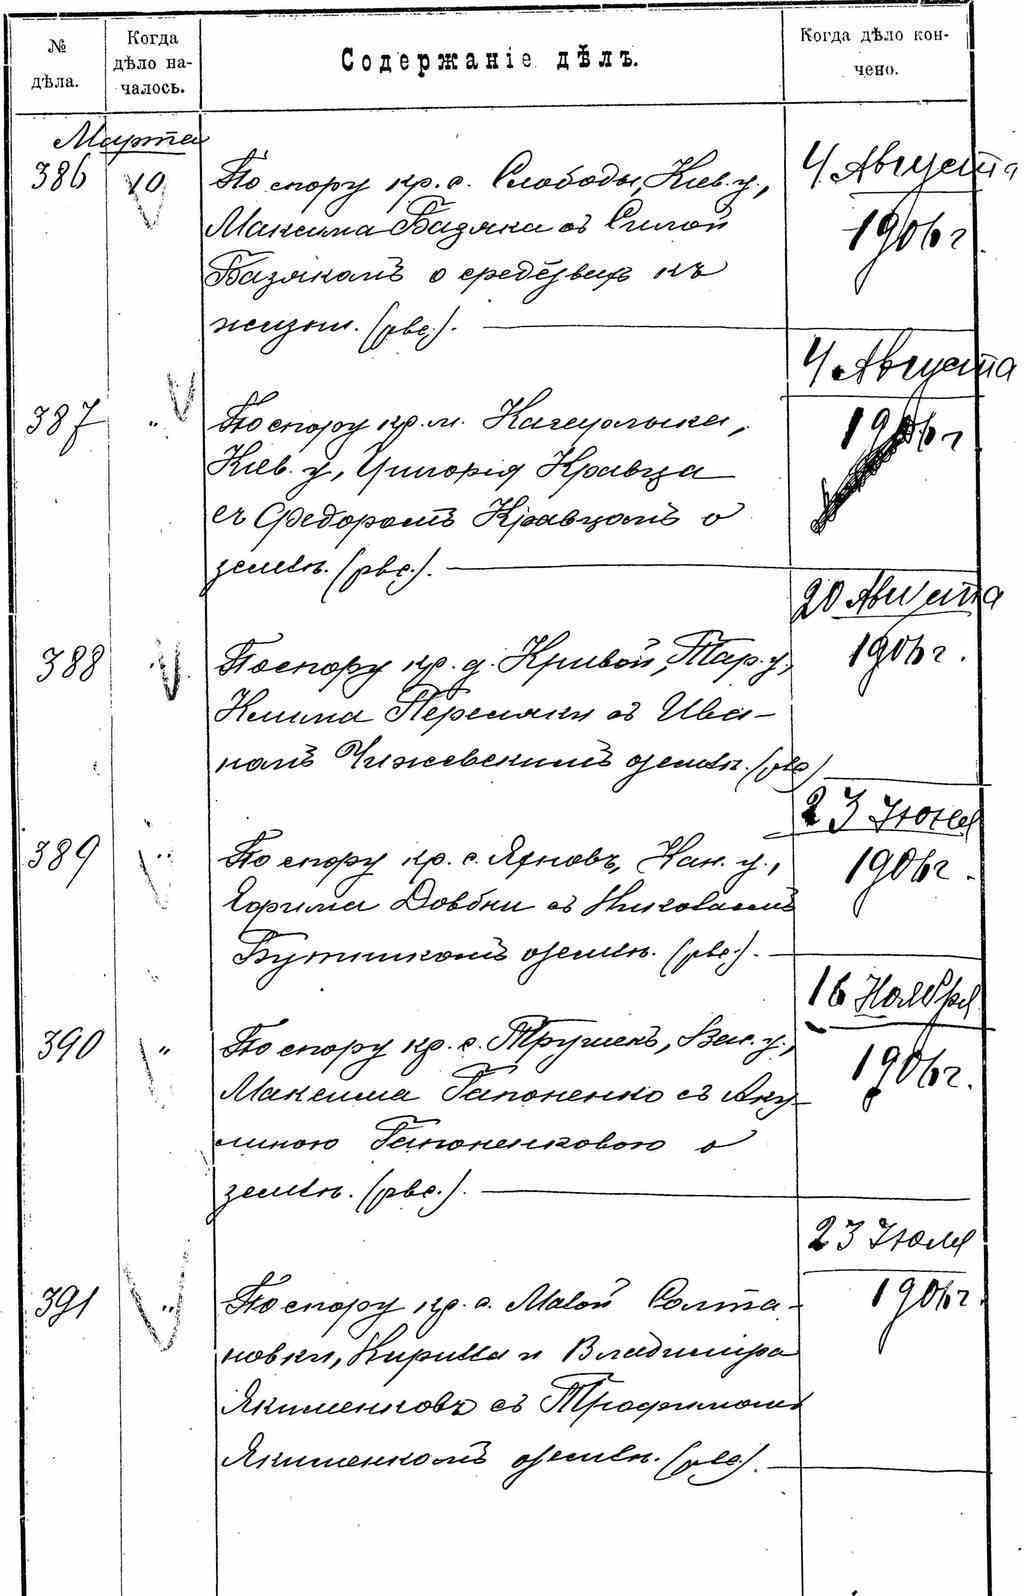 № дѣла.
Когда дѣло началось.
Содержаніе дѣлъ.
Когда дѣло кончено.
Марта
386 10 По спору кр. с. Слободы, Кіев. у., 4 Августа
Максима Базяка съ Силой 1906 г.
Базякомъ о средствах къ
жизни. (рвс.).
4 Августа
387 " По спору кр. м. Кагарлыка, 1906 г
Кіев. у., Григорія Кравца
съ Федоромъ Кравцомъ о
землѣ. (рвс.).
20 Августа
388 " По спору кр. д. Кривой, Тар. у., 1906 г.
Клима Пересяки съ Ива-
номъ Чижевскимъ о землѣ. (рвс)
23 Июня
389 " По спору кр. с. Яхновъ, Кан. у., 1906 г.
Ефима Довбни съ Николаемъ
о землѣ. (рвс.).
16 Ноября
390 " По спору кр. с. Трушекъ, Вас. у., 1906 г.
Максима Гапоненко съ Аку-
линою Гапоненковою о
землѣ. (рвс.).
23 Июля
391 " По спору кр. с. Малой Солта- 1906 г.
новки, Кирилла и Владиміра
Якименковъ съ Трофимомъ
Якименкомъ о землѣ. (рвс).